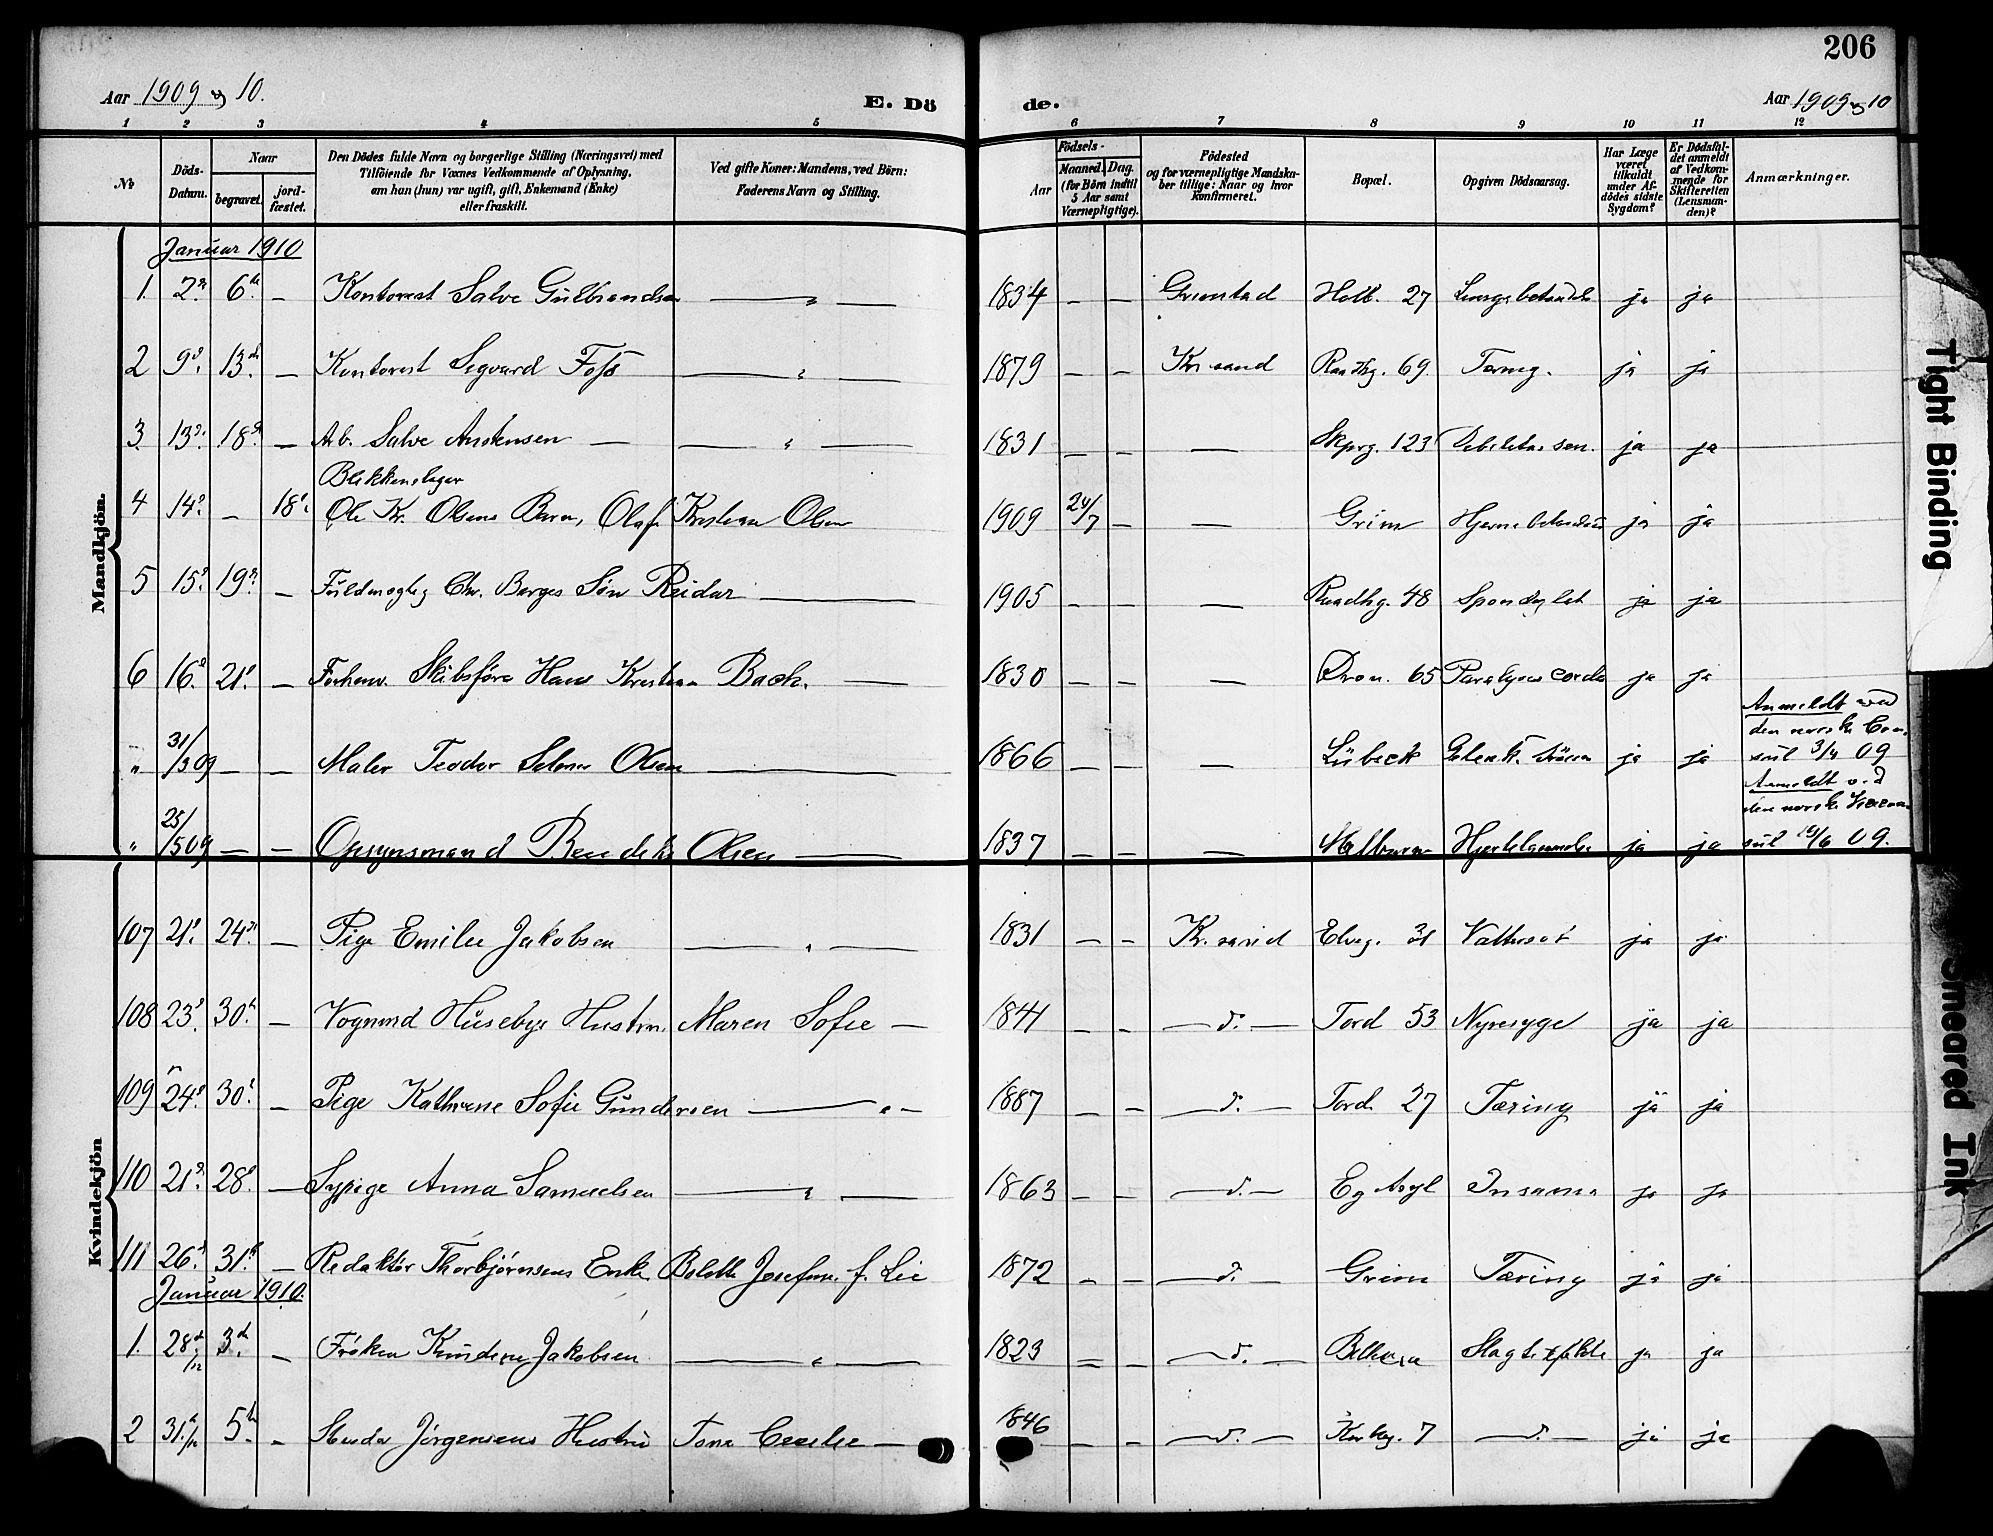 206
Aar 1909 og 10.
E. Dö
de.
Aar 1909 og 10
1 2 3 4 5 6 7 8 9 10 11 12
No
Döds-Datum.
Naar
begravet.
jord-fæstet.
Den Dödes fulde Navn og borgerlige Stilling (Næringsvei) med
Tilföiende for Voxnes Vedkommende af Oplysning,
om han (hun) var ugift, gift, Enkemand (Enke)
eller fraskilt.
Ved gifte Koner: Mandens, ved Börn:
Faderens Navn og Stilling.
Födsels-
Aar
Maaned. Dag.
(for Börn indtil
5 Aar samt
Værnepligtige).
Födested
og for værnepligtige Mandska-
ber tillige: Naar og hvor
konfirmeret.
Bopæl.
Opgiven Dödsaarsag.
Har Læge
været
tilkaldt
under Af-
dödes sidste
Sygdom?
Er Dödsfal-
det anmeldt
af Vedkom-
mende for
Skifteretten
(Lensman-
den)?
Anmærkninger.
Mandkjön.
Januar 1910
1. 2. 6. — Kontorist Salve Gulbrandsen — " — 1834 — — Grimstad Holb. 27 Lungebetændelse ja ja
2 9. 13. — Kontorist Sigvard Foss — " — 1879 — — Kr.sand Raadhg. 69. Tæring. ja ja
3. 13. 18. — Arb. Salve Anstensen — " — 1831 — — — Skprg. 123 Debilitas sen. ja ja
Blikkenslager
4 14. — 18. Ole Kr. Olsens Barn, Olaf Kristian Olsen 1909 24/7 — — Grim Hjernebetændelse ja ja
5 15. 19. — Fuldmægtig Chr. Berges Søn Reidar — 1905 — — — Raadhg. 48 Spondylit ja ja
6 16. 21. — Forhenv. Skibsfører Hans Kristian Bach. — 1830 — — — Dron. 65 Paralysis cordis ja ja
" 31/3 09 — — Maler Teodor Olsen — 1866 — — — Lübeck ja ja Anmeldt ved
den norske Con-
sul 3/4 09
" 25/5 09 — — Opsynsmand Olsen — 1837 — — — Hjertelammelse ja ja Anmeldt ved
den norske
sul 10/6 09.
Kvindekjön
107 21. 24. — Pige Emilie Jakobsen — " — 1831 — — Kr.sand Elveg. 31 Vattersot ja ja
108 23. 30. — Vognmd Husebys Hustru Maren Sofie — 1841 — — — d. — Tord 53 Nyresyge ja ja
109 24. 30. — Pige Kathrine Sofie Gundersen — " — 1887 — — — d. — Tord. 27 Tæring ja ja
110 21. 28. — Sypige Anna Samuelsen — " — 1863 — — — d. — Eg Asyl Insania ja ja
111 26. 31. — Redaktør Thorbjørnsens Enke Bolette Josefine f. Lie 1872 — — — d. — Grim Tæring ja ja
Januar 1910.
1. 28/12 3. — Frøken Jakobsen — " — 1823 — — — d. — Bellevue ja ja
2 31/12 5. — Jørgensens Hustru Tona Cecilie — 1846 — — — d. — 7 — d. — ja ja
Tight Binding
Smeared Ink